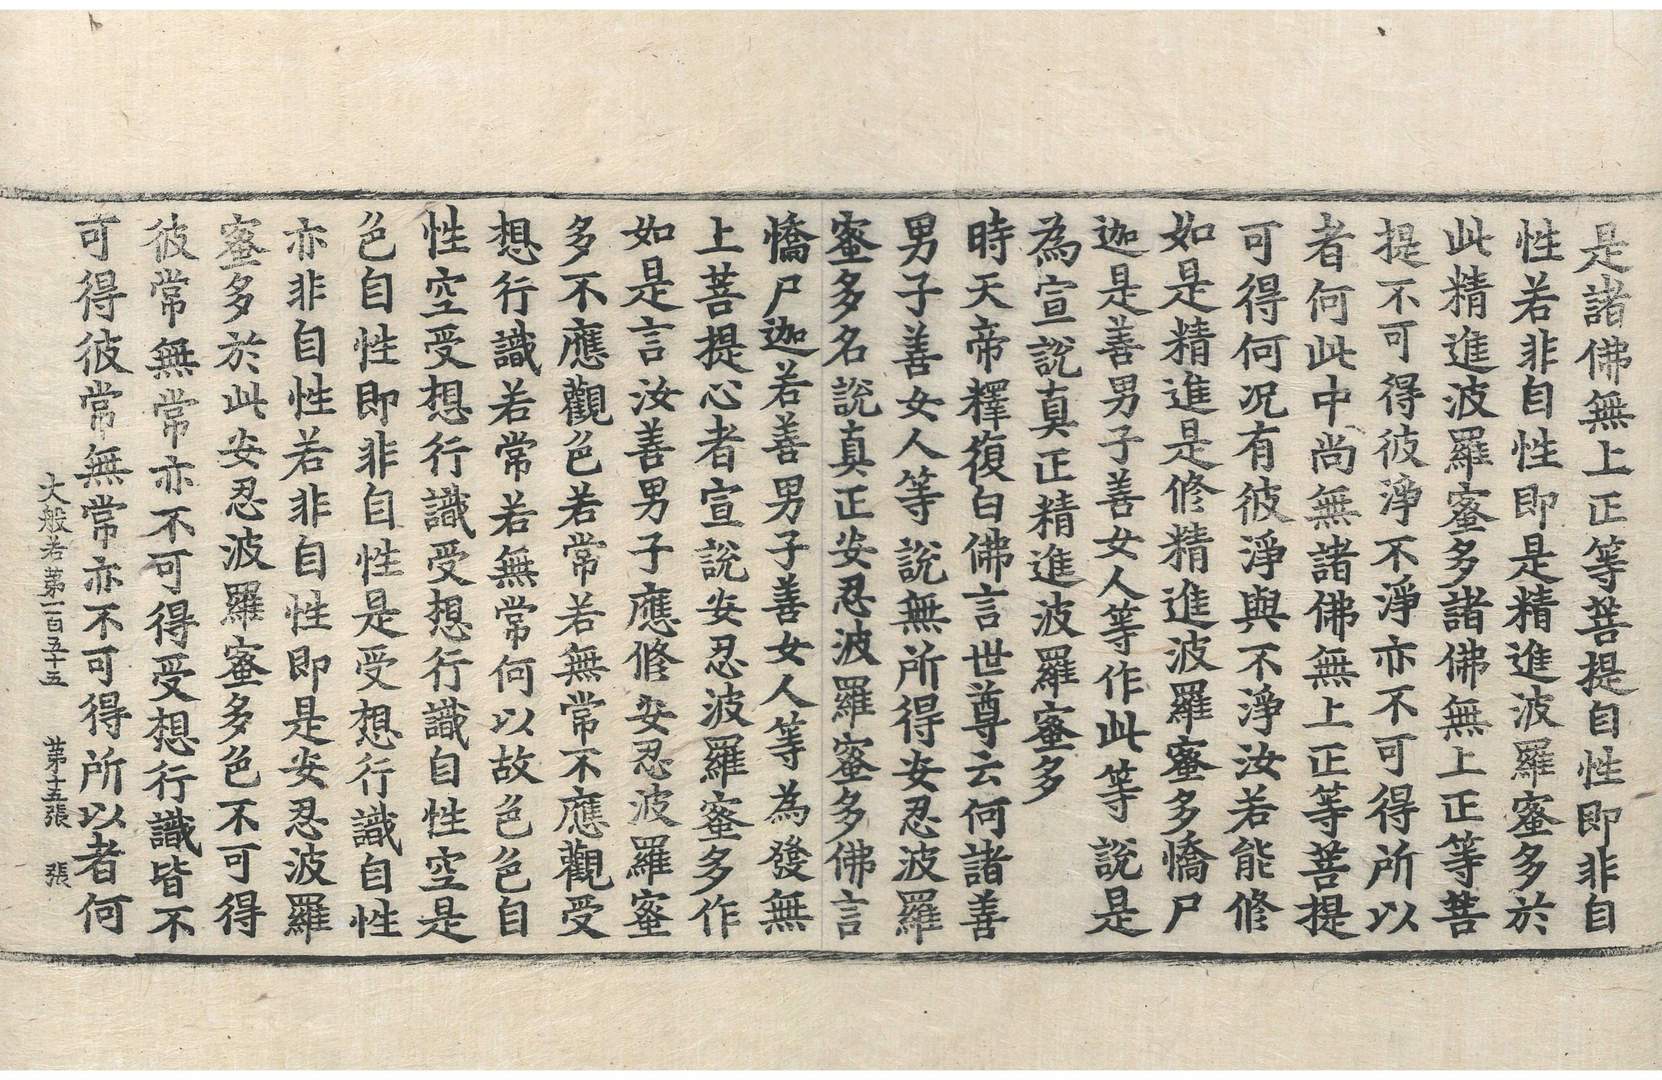 是諸佛無上正等菩提自性即非自
性若非自性即是精進波羅蜜多於
此精進波羅蜜多諸佛無上正等菩
提不可得彼淨不淨亦不可得所以
者何此中尚無諸佛無上正等菩提
可得何况有彼淨與不淨汝若能修
如是精進是修精進波羅蜜多憍尸
迦是善男子善女人等作此等說是
為宣說真正精進波羅蜜多
時天帝釋復白佛言世尊云何諸善
男子善女人等說無所得安忍波羅
蜜多名說真正安忍波羅蜜多佛言
憍尸迦若善男子善女人等為發無
上菩提心者宣說安忍波羅蜜多作
如是言汝善男子應修安忍波羅蜜
多不應觀色若常若無常不應觀受
想行識若常若無常何以故色色自
性空受想行識受想行識自性空是
色自性即非自性是受想行識自性
亦非自性若非自性即是安忍波羅
蜜多於此安忍波羅蜜多色不可得
彼常無常亦不可得受想行識皆不
可得彼常無常亦不可得所以者何
大般若第一百五十五 第十五張 張